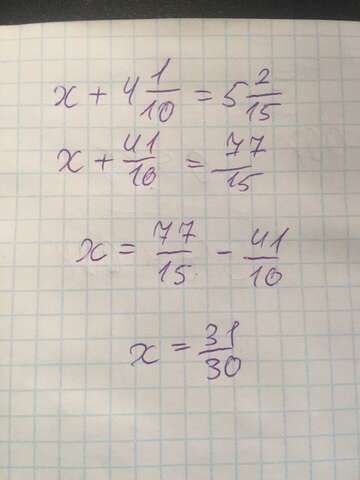 x + 4 1/10 = 5 2/15
x + 41/10 = 77/15
x = 77/15 - 41/10
x = 31/30